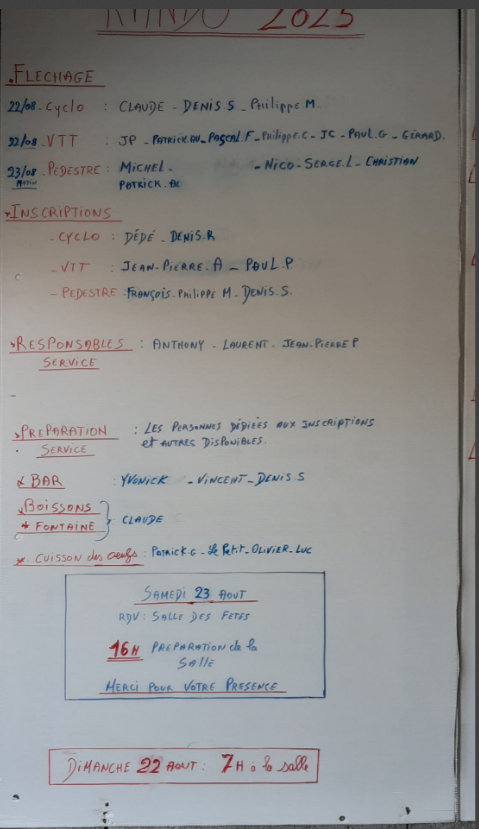 RANDO 2025
.FLECHAGE
22/08 - Cyclo : CLAUDE - DENIS S - Philippe M.
22/08 . VTT : JP - PATRICK.AU - PASCAL.F - Philippe.C - JC - PAUL.G - GÉRARD.
23/08 . PEDESTRE : MICHEL. - NICO - SERGE.L - CHRISTIAN
MATIN PATRICK.
INSCRIPTIONS
- CYCLO : DÉDÉ - DENIS.R
- VTT : JEAN-PIERRE.A - PAUL.P
- PEDESTRE : FRANÇOIS. PHILIPPE M - DENIS.S.
RESPONSABLES : ANTHONY - LAURENT - JEAN-PIERRE P
SERVICE
PREPARATION : LES PERSONNES DÉDIÉES AUX INSCRIPTIONS
SERVICE et AUTRES DISPONIBLES.
BAR : YVONICK - VINCENT - DENIS S
BOISSONS
+ FONTAINE } CLAUDE
CUISSON des oeufs : PATRICK.G - Le Petit - OLIVIER - LUC
SAMEDI 23 AOUT
RDV : SALLE DES FETES
16H PREPARATION de la
SALLE
MERCI POUR VOTRE PRESENCE
DIMANCHE 22 AOUT : 7H à la salle